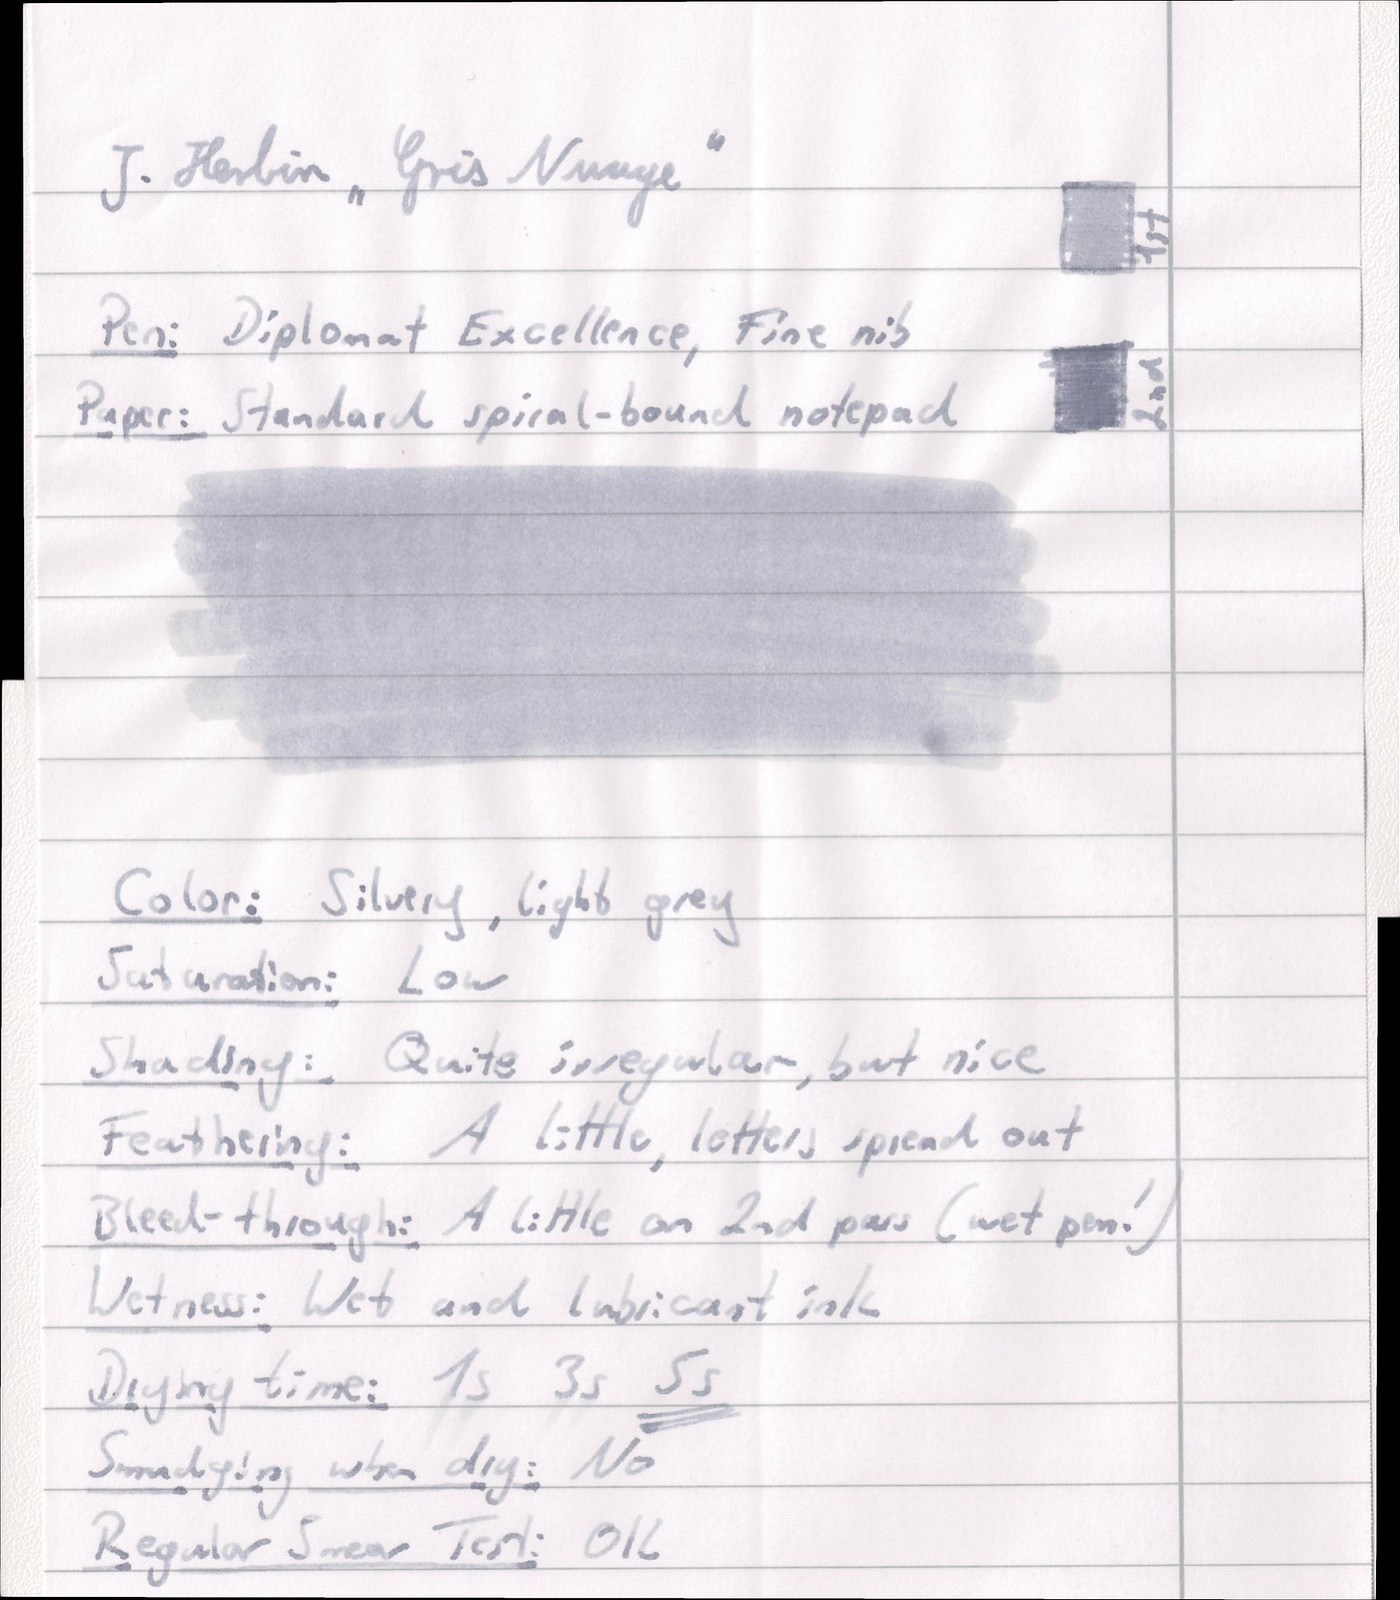 J. Herbin „Gris Nuage“
1st
Pen: Diplomat Excellence, Fine nib
2nd
Paper: Standard spiral-bound notepad
Color: Silvery, light grey
Saturation: Low
Shading: Quite irregular, but nice
Feathering: A little, letters spread out
Bleed-through: A little on 2nd pass (wet pen!)
Wetness: Wet and lubricant ink
Drying time: 1s 3s 5s
Smudging when dry: No
Regular Smear Test: OK